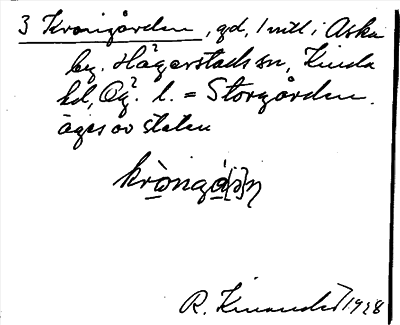 3 Kronogården, gd, 1 mtl i Aska
by. Hägerstads sn, Kinda
hd, Ög. l. = Storgården.
äges av staten
R. Kinander 1928